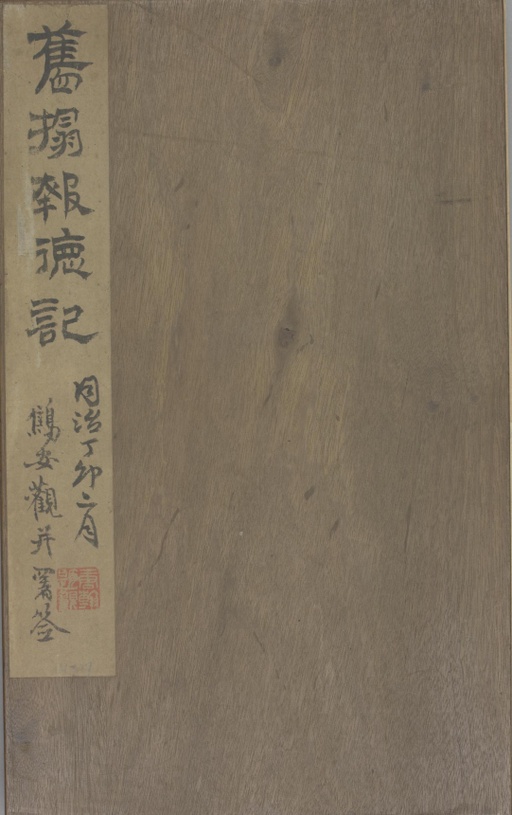 舊搨報德記
同治丁卯二月
鶴安觀并署簽